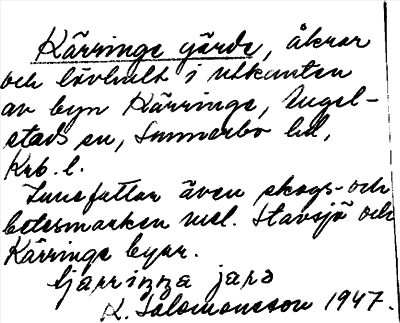 Kärringe gärde, åkrar
och lövhult i utkanten
av byn Kärringe, Angel-
stads sn, Sunnerbo hd,
Krb. l.
Innefattar även skogs- och
betesmarken mel. Stavsjö och
Kärringe byar.
K. Salomonsson 1947.